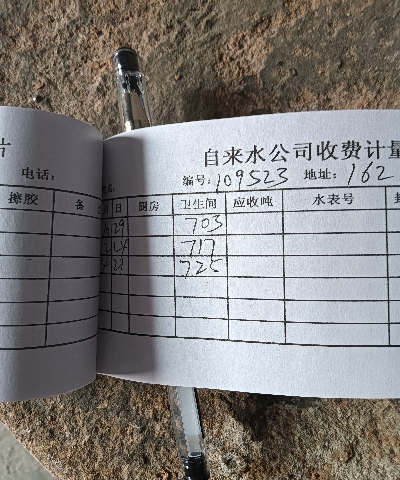 片
电话:
擦胶 备
自来水公司收费计量
编号: 109523 地址: 162
日 厨房 卫生间 应收吨 水表号
29 703
24 717
725